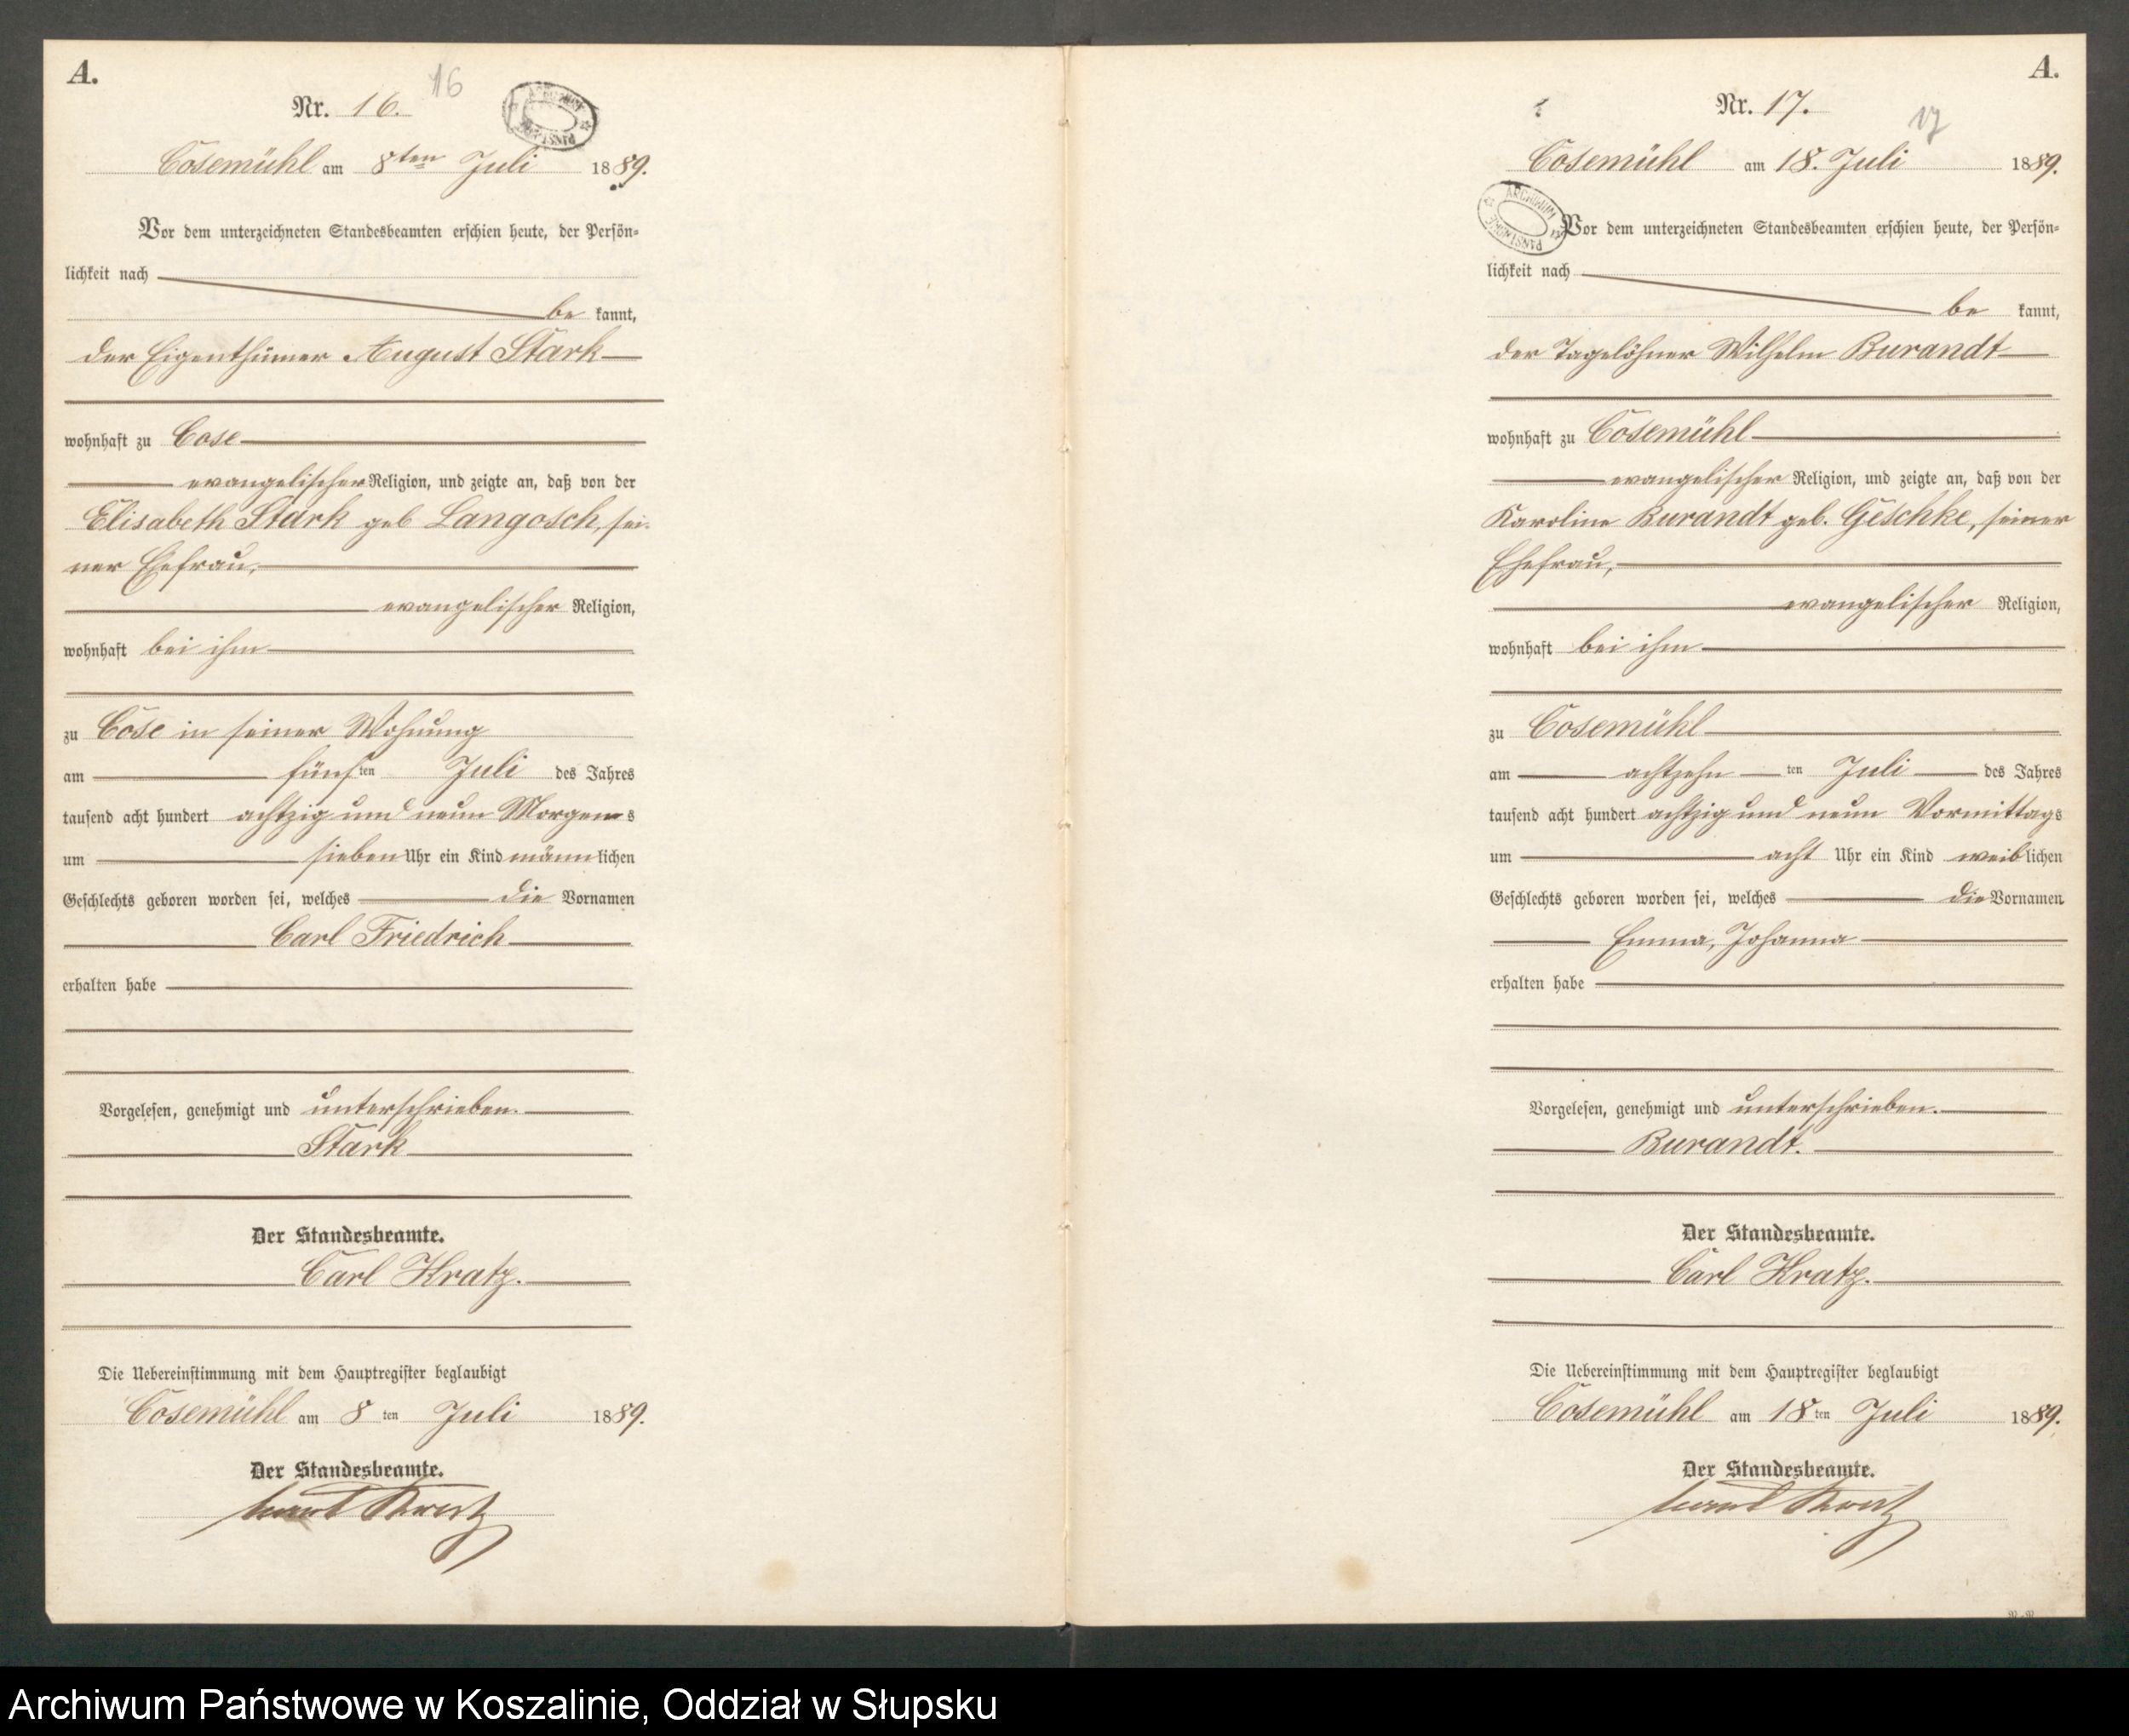 A.
Nr. 16.
16
Cosemühl am 8ten Juli 1889.
Vor dem unterzeichneten Standesbeamten erschien heute, der Persön-
lichkeit nach
be kannt,
der Eigenthümer August Stark
wohnhaft zu Cose
evangelischer Religion, und zeigte an, daß von der
Elisabeth Stark geb Langosch, sei-
ner Ehefrau,
evangelischer Religion,
wohnhaft bei ihm
zu Cose in seiner Wohnung
am fünf ten Juli des Jahres
tausend acht hundert achtzig und neun Morgens
um sieben Uhr ein Kind männlichen
Geschlechts geboren worden sei, welches die Vornamen
Carl Friedrich
erhalten habe
Vorgelesen, genehmigt und unterschrieben.
Stark
Der Standesbeamte.
Carl Kratz.
Die Uebereinstimmung mit dem Hauptregister beglaubigt
Cosemühl am 8 ten Juli 1889.
Der Standesbeamte.
Carl Kratz
A.
Nr. 17.
17
Cosemühl am 18. Juli 1889.
ARCHIWUM PAŃSTWOWE
Vor dem unterzeichneten Standesbeamten erschien heute, der Persön-
lichkeit nach
be kannt,
der Tagelöhner Wilhelm Burandt
wohnhaft zu Cosemühl
evangelischer Religion, und zeigte an, daß von der
Karoline Burandt geb. Geschke, seiner
Ehefrau,
evangelischer Religion,
wohnhaft bei ihm
zu Cosemühl
am achtzehn ten Juli des Jahres
tausend acht hundert achtzig und neun Vormittags
um acht Uhr ein Kind weiblichen
Geschlechts geboren worden sei, welches die Vornamen
Emma, Johanna
erhalten habe
Vorgelesen, genehmigt und unterschrieben.
Burandt.
Der Standesbeamte.
Carl Kratz.
Die Uebereinstimmung mit dem Hauptregister beglaubigt
Cosemühl am 18 ten Juli 1889.
Der Standesbeamte.
Carl Kratz
Archiwum Państwowe w Koszalinie, Oddział w Słupsku